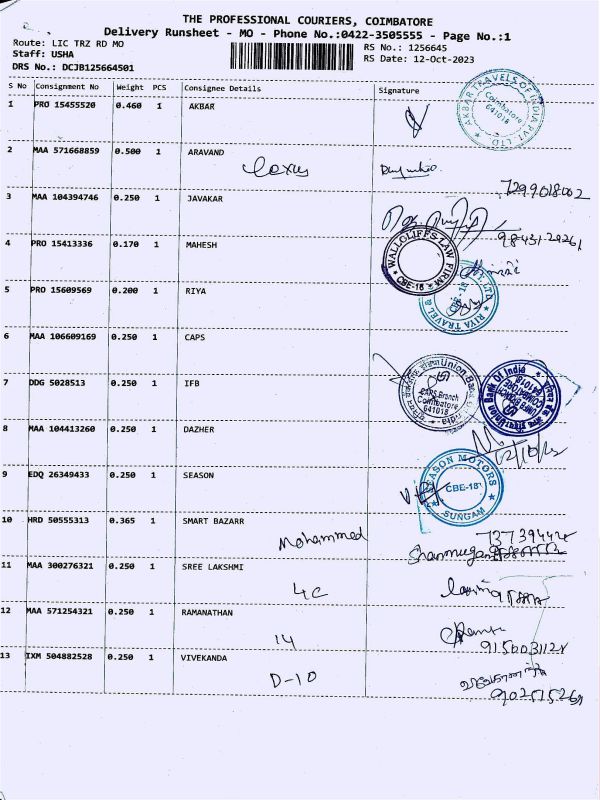 THE PROFESSIONAL COURIERS, COIMBATORE
Delivery Runsheet - MO - Phone No.:0422-3505555 - Page No.:1
Route: LIC TRZ RD MO
RS No.: 1256645
Staff: USHA
RS Date: 12-Oct-2023
DRS No.: DCJB125664501
S No Consignment No Weight PCS Consignee Details Signature
1 PRO 15455520 0.460 1 AKBAR
AKBAR TRAVELS OF INDIA PVT. LTD
Coimbatore
641018
2 MAA 571668859 0.500 1 ARAVAND
7299018002
3 MAA 104394746 0.250 1 JAVAKAR
4 PRO 15413336 0.170 1 MAHESH
WALLOLIFFS LAW FIRM
CBE-18
5 PRO 15609569 0.200 1 RIYA
RIYA TRAVEL &
CBE-18
6 MAA 106609169 0.250 1 CAPS
Union Bank
CAPS Branch
Coimbatore
641018
7 DDG 5028513 0.250 1 IFB
Union Bank Of India
8 MAA 104413260 0.250 1 DAZHER
9 EDQ 26349433 0.250 1 SEASON
SEASON MOTORS
CBE-18
SUNGAM
10 HRD 50555313 0.365 1 SMART BAZARR
Mohammed
11 MAA 300276321 0.250 1 SREE LAKSHMI
4C
12 MAA 571254321 0.250 1 RAMANATHAN
14
13 IXM 504882528 0.250 1 VIVEKANDA
D-10